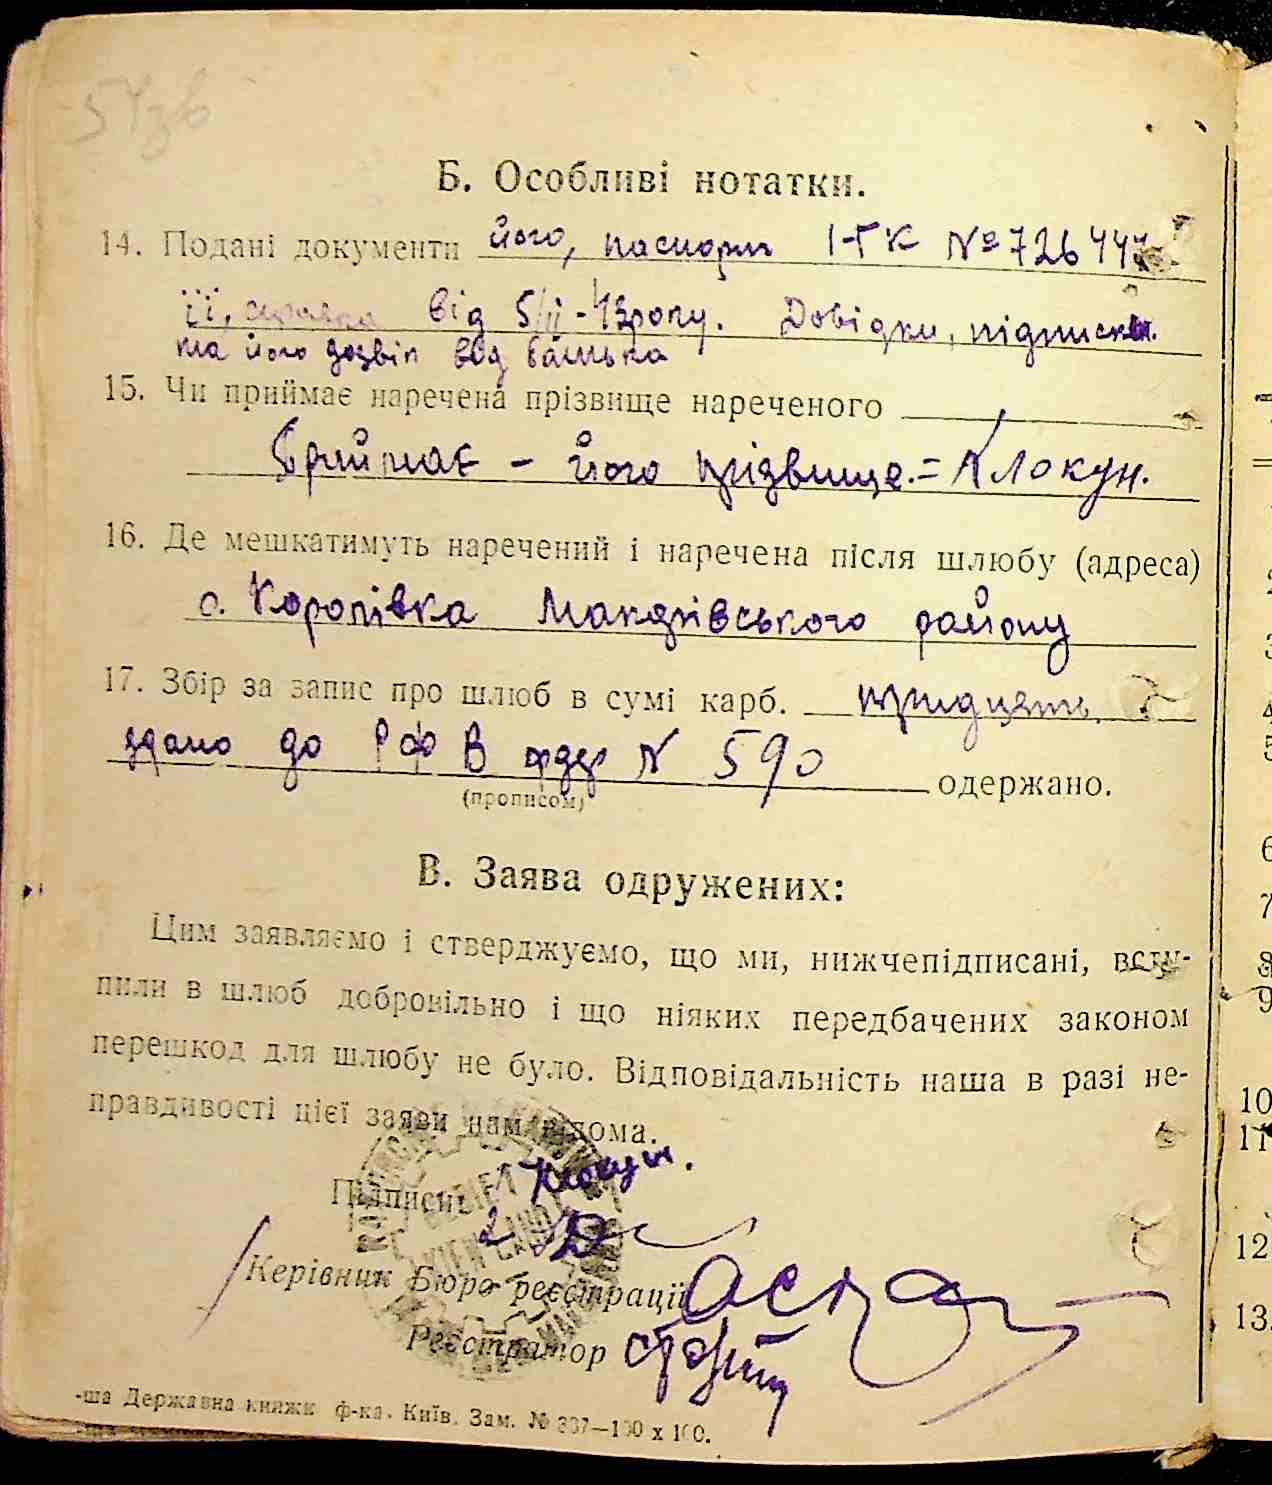 54зв
Б. Особливі нотатки.
14. Подані документи його, паспорт І-ГК № 726447
її, справка від 5/ІІ-43року. Довідки, підписки
та його дозвіл від батька
15. Чи приймає наречена прізвище нареченого
Приймає - його прізвище.= Клокун.
16. Де мешкатимуть наречений і наречена після шлюбу (адреса)
с. Королівка Макарівського району
17. Збір за запис про шлюб в сумі карб. тридцять
здано до РФВ ордер N 590 одержано.
(прописом)
В. Заява одружених:
Цим заявляємо і стверджуємо, що ми, нижчепідписані, всту-
пили в шлюб добровільно і що ніяких передбачених законом
перешкод для шлюбу не було. Відповідальність наша в разі не-
правдивості цієї заяви нам відома.
Підписи: 1 Клокун.
2
Керівник Бюро реєстрації
Реєстратор
-ша Державна книжк ф-ка. Київ. Зам. № 337—100 х 100.
9
10
11
12
13.